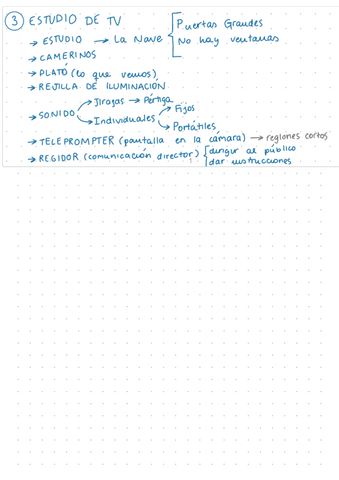 ③ ESTUDIO DE TV
→ ESTUDIO → La Nave [ Puertas Grandes
No hay ventanas
→ CAMERINOS
→ PLATÓ (lo que vemos)
→ REJILLA DE ILUMINACIÓN
→ SONIDO → Jirafas → Pértiga
→ Individuales → Fijos
→ Portátiles
→ TELEPROMPTER (pantalla en la cámara) → regiones cortos
→ REGIDOR (comunicación director) [ dirigir al público
dar instrucciones